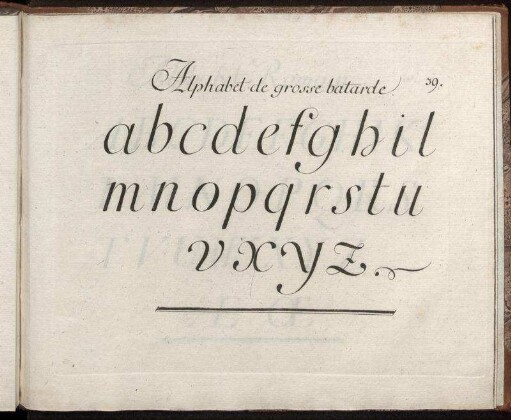 Alphabet de grosse batarde. 39.
abcdefghil
mnopqrstu
vxyz.